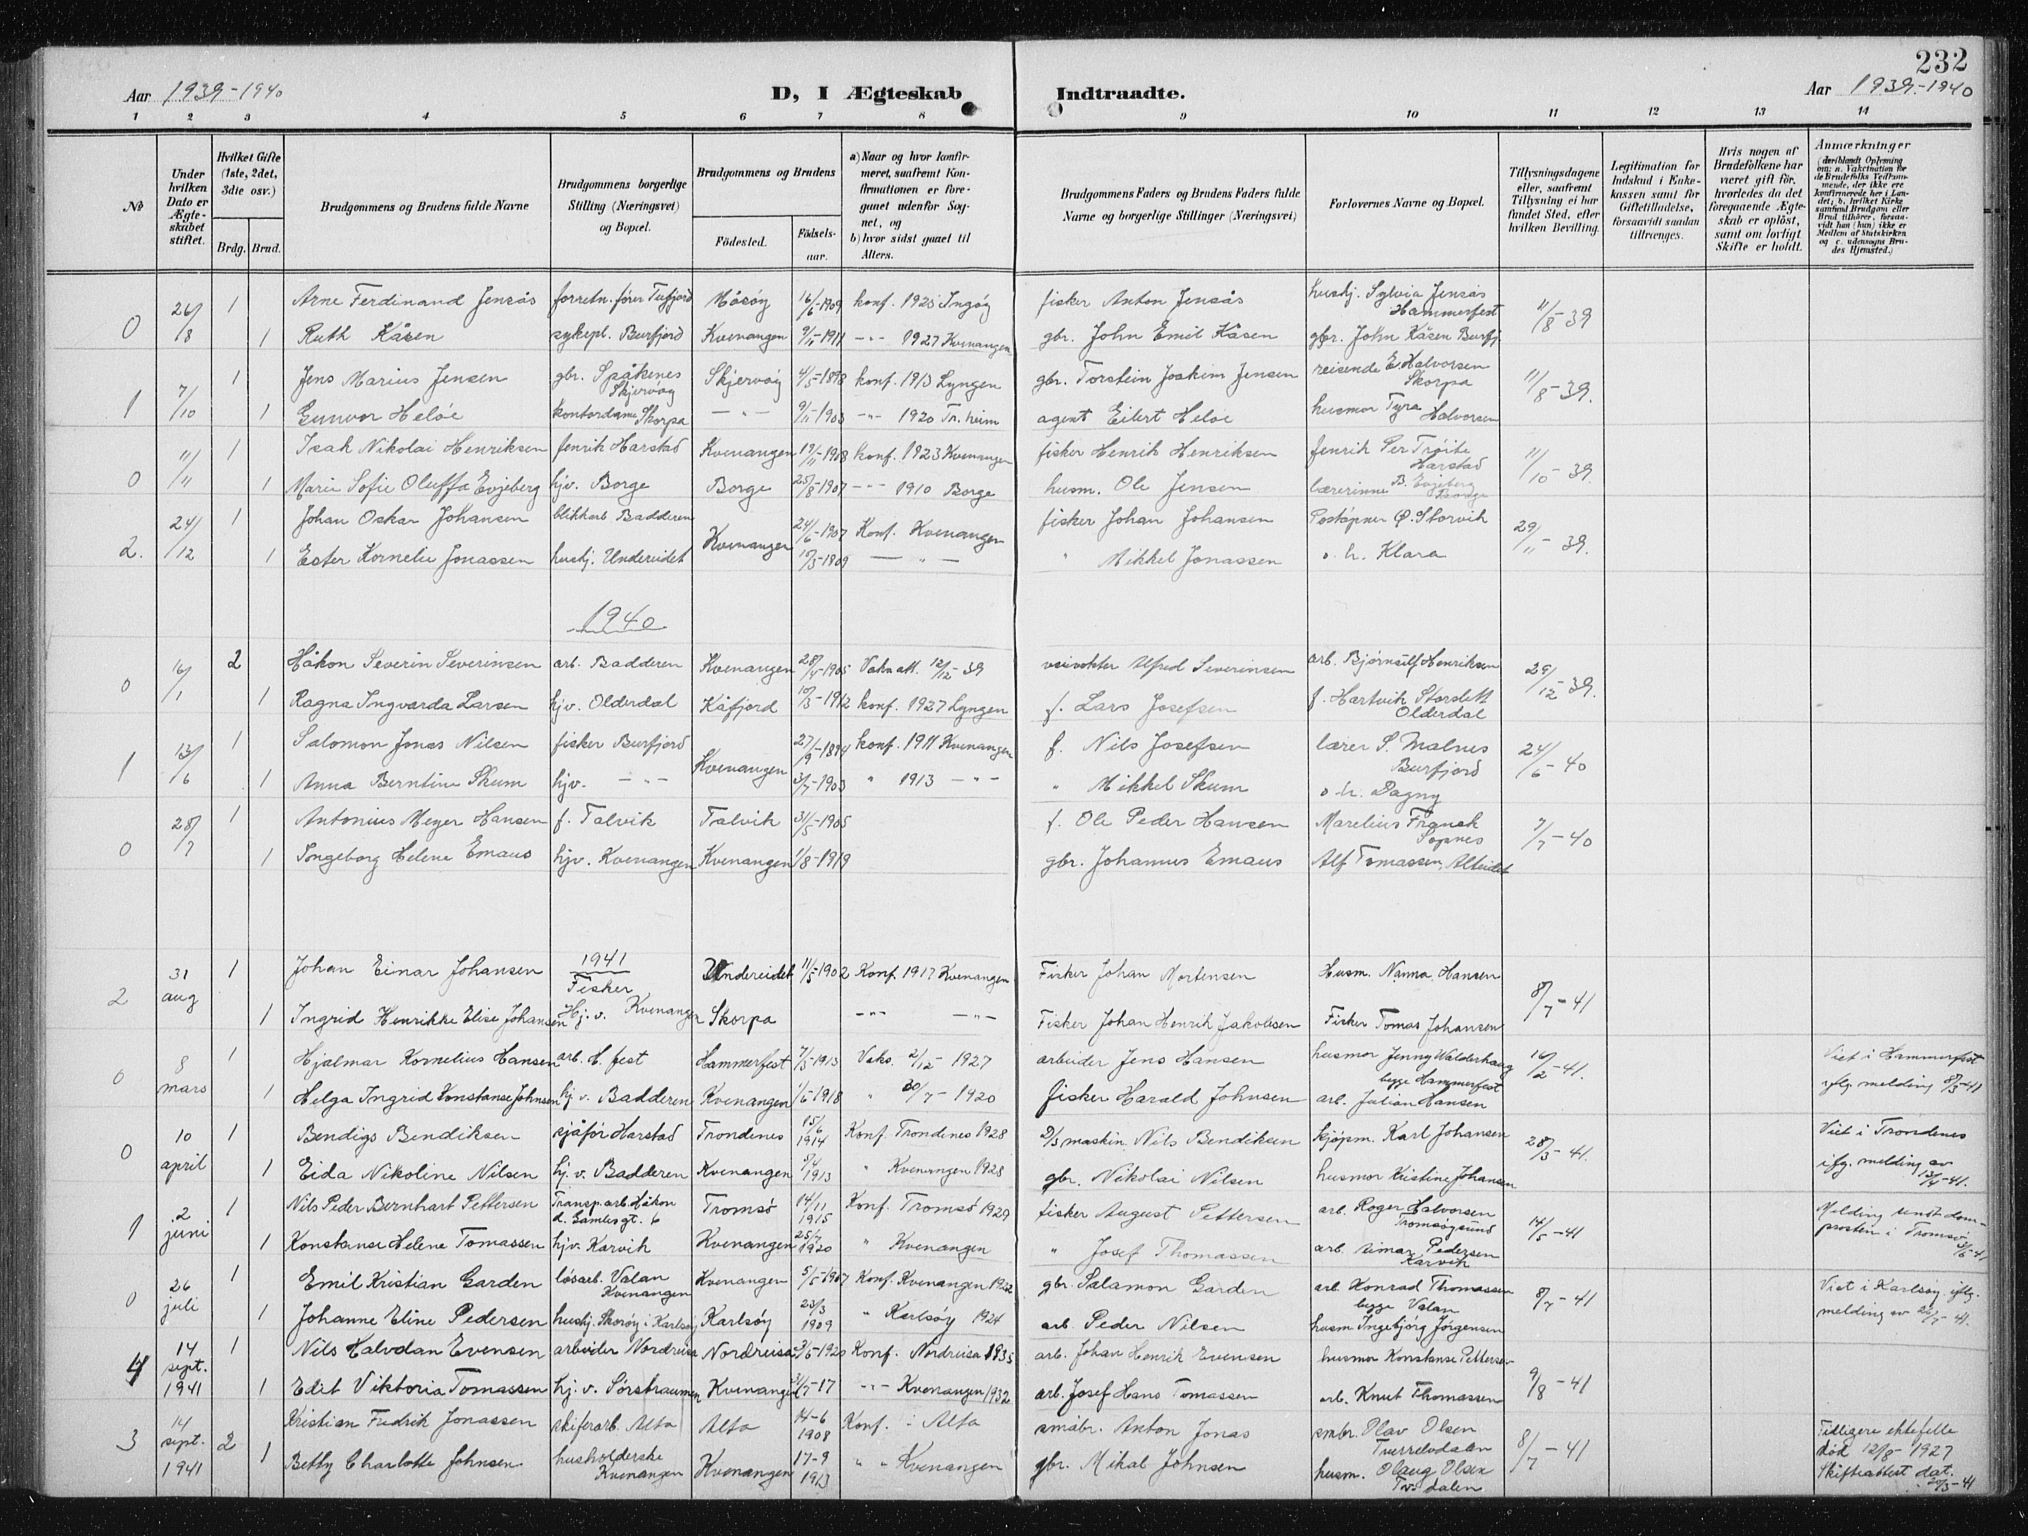 232
Aar 1939-1940 D, I Ægteskab Indtraadte. Aar 1939-1940
1 2 3 4 5 6 7 8 9 10 11 12 13 14
No
Under hvilken Dato er Ægteskabet stiftet.
Hvilket Gifte (1ste, 2det, 3die osv.)
Brdg. Brud.
Brudgommens og Brudens fulde Navne
Brudgommens borgerlige Stilling (Næringsvei) og Bopæl.
Brudgommens og Brudens
Fødested. Fødselsaar.
a) Naar og hvor konfirmeret, saafremt Konfirmationen er foregaaet udenfor Sognet, og
b) hvor sidst gaaet til Alters.
Brudgommens Faders og Brudens Faders fulde Navne og borgerlige Stillinger (Næringsvei)
Forlovernes Navne og Bopæl.
Tillysningsdagene eller, saafremt Tillysning ei har fundet Sted, efter hvilken Bevilling.
Legitimation for Indskud i Enkekassen samt for Giftetilladelse, forsaavidt saadan tiltrænges.
Hvis nogen af Brudefolkene har været gift før, hvorledes da det foregaaende Ægteskab er opløst, samt om lovligt Skifte er holdt.
Anmærkninger (deriblandt Oplysning om: a. Vakcination for de Brudefolks Vedkommende, der ikke ere konfirmerede her i Landet; b. hvilket Kirkesamfund Brudgom eller Brud tilhører, forsaavidt han (hun) ikke er Medlem af Statskirken og c. udensogns Brudes Hjemsted.)
0 26/8 1 Arne Ferdinand Jensås forretn.fører Tufjord Måsøy 16/6-1909 konf. 1925 Ingøy fisker Anton Jensås hushj. Sylvia Jensås Hammerfest 11/8-39
1 Ruth Kåsen sykepl. Burfjord Kvenangen 9/11-1911 -"- 1927 Kvenangen gbr. John Emil Kåsen gbr. John Kåsen Burfj.
1 7/10 1 Jens Marius Jensen gbr. Spåkenes Skjervøy Skjervøy 4/5-1898 konf. 1913 Lyngen gbr. Torstein Joakim Jensen reisende E. Halvorsen Skorpa 11/8-39.
1 Gunvor Heløe kontordame Skorpa -"- 9/11-1903 -"- 1920 Tr.heim agent Eilert Heløe husmor Tyra Halvorsen
0 11/11 1 Isak Nikolai Henriksen fenrik Harstad Kvenangen 19/11-1908 konf. 1923 Kvenangen fisker Henrik Henriksen fenrik Per Trøite Harstad 11/10-39.
1 Marie Sofie Oluffa Evjeberg hjv. Borge Borge 25/8-1907 -"- 1910 Borge husm. Ole Jensen lærerinne B. Evjeberg Borge
2. 24/12 1 Johan Oskar Johansen blikkarb Badderen Kvenangen 24/6-1907 Konf. Kvenangen fisker Johan Johansen Poståpner Ø. Storvik 29/11-39.
1 Ester Kornelie Jonassen hushj. Undereidet 10/3-1909 -"- " Mikkel Jonassen o. h. Klara
1940
0 16/1 2 Håkon Severin Severinsen arb. Badderen Kvenangen 28/4-1905 Vakn att. 12/12-39 veivokter Alfred Severinsen arb. Bjørnulf Henriksen 29/12-39.
1 Ragna Ingvarda Larsen hjv. Olderdal Kåfjord 10/3-1912 konf. 1927 Lyngen f. Lars Josefsen f. Hartvik Storslett Olderdal
1 13/6 1 Salomon Jonas Nilsen fisker Burfjord Kvenangen 27/9-1894 konf. 1911 Kvenangen f. Nils Josefsen lærer S. Malnes Burfjord 24/6-40
1 Anna Berntine Skum hjv. -"- 3/7-1903 " 1913 -"- " Mikkel Skum o. h. Dagny
0 28/7 1 Antonius Meyer Hansen f. Talvik Talvik 31/5-1905 f. Ole Peder Hansen Marelius Fransk Sopnes 7/7-40
1 Ingeborg Helene Emaus hjv. Kvenangen Kvenangen 1/8-1919 gbr. Johannus Emaus Alf Tomassen, Alteidet
1941
2 31 aug 1 Johan Einar Johansen Fisker Undereidet 11/5-1902 Konf. 1917 Kvenangen Fisker Johan Mortensen Husm. Nanna Hansen 8/7-41
1 Ingrid Henrikke Elise Johansen Hj.v. Kvenangen Skorpa -"- -"- Fisker Johan Henrik Jakobsen Fisker Tomas Johansen
0 8 mars 1 Hjalmar Kornelius Hansen arb. H.fest Hammerfest 7/3-1913 Vaks. 2/12 1927 arbeider Jens Hansen husmor Jenny Walderhaug begge Hammerfest 16/2-41. Viet i Hammerfest iflg. melding 8/3-41
1 Helga Ingrid Konstanse Johnsen hj.v. Badderen Kvenangen 1/6-1918 " 30/7-1920 fisker Harald Johnsen arb. Julian Hansen
0 10 april 1 Bendigs Bendiksen sjåfør Harstad Trondenes 15/6 1914 Konf. Trondenes 1928 maskin. Nils Bendiksen kjøpm. Karl Johansen 28/3-41. Viet i Trondenes iflg. melding av 13/4-41.
1 Eida Nikoline Nilsen hj.v. Badderen Kvenangen 5/4 1913 " Kvenangen 1928 gbr. Nikolai Nilsen husmor Kristine Johansen
1 2 juni 1 Nils Peder Bernhart Pettersen Transp.arb. Håkon d. Gamles gt. 6 Tromsø 14/11 1915 Konf. Tromsø 1929 fisker August Pettersen arb. Roger Halvorsen Tromsøysund 14/5-41 Melding sendt domprosten i Tromsø 3/6-41
1 Konstanse Helene Tomassen hjv. Karvik Kvenangen 25/7 1920 " Kvenangen " Josef Thomassen arb. Einar Pedersen Karvik
0 26 juli 1 Emil Kristian Garden løsarb. Valan Kvenangen Kvenangen 5/5-1907 Konf. Kvenangen 1922 gbr. Salamon Garden arb. Konrad Thomassen begge Valan 8/7-41 Viet i Karlsøy iflg. melding av 26/7-41.
1 Johanne Eline Pedersen hushj. Skorøy i Karlsøy Karlsøy 23/3 1909 " Karlsøy 1924 arb. Peder Nilsen husm Ingebjørg Jørgensen
4 14 sept. 1941 1 Nils Halvdan Evensen arbeider Nordreisa Nordreisa 2/6-1920 Konf. Nordreisa 1935 arb. Johan Henrik Evensen husmor Konstanse Pettersen 9/8-41
1 Edit Viktoria Tomassen hj.v. Sørstraumen Kvenangen 21/7-17 -"- Kvenangen 1932 arb. Josef Hans Tomassen arb. Knut Thomassen
3 14 sept. 1941 2 Kristian Fredrik Jonassen skiferarb. Alta Alta 14-6 1908 Konf. i Alta småbr. Anton Jonas smbr. Olav Olsen Tverrelvdalen 8/7-41 Tidligere ektefelle død 12/8-1927 Skifteattest dat. 20/5-41
1 Betty Charlotte Johnsen husholderske Kvenangen Kvenangen 17-9 1913 " " Kvenangen gbr. Mikal Johnsen husm. Olaug Olsen Tv. dalen